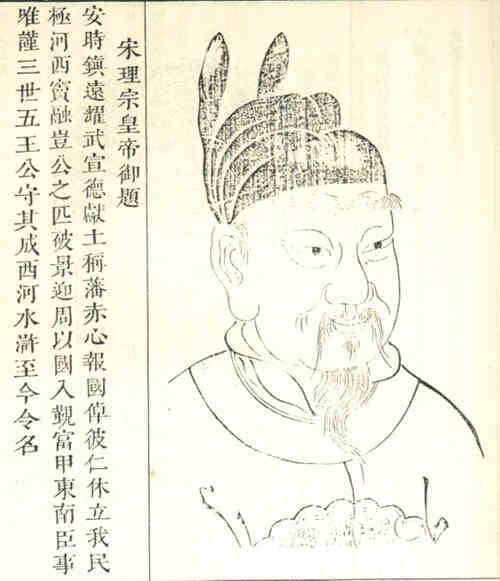 宋理宗皇帝御題
安時鎭遠耀武宣德獻土稱藩赤心報國倬彼仁休立我民
極河西竇融豈公之匹破景迎周以國入覲富甲東南臣事
唯謹三世五王公守其成西河水滸至今令名